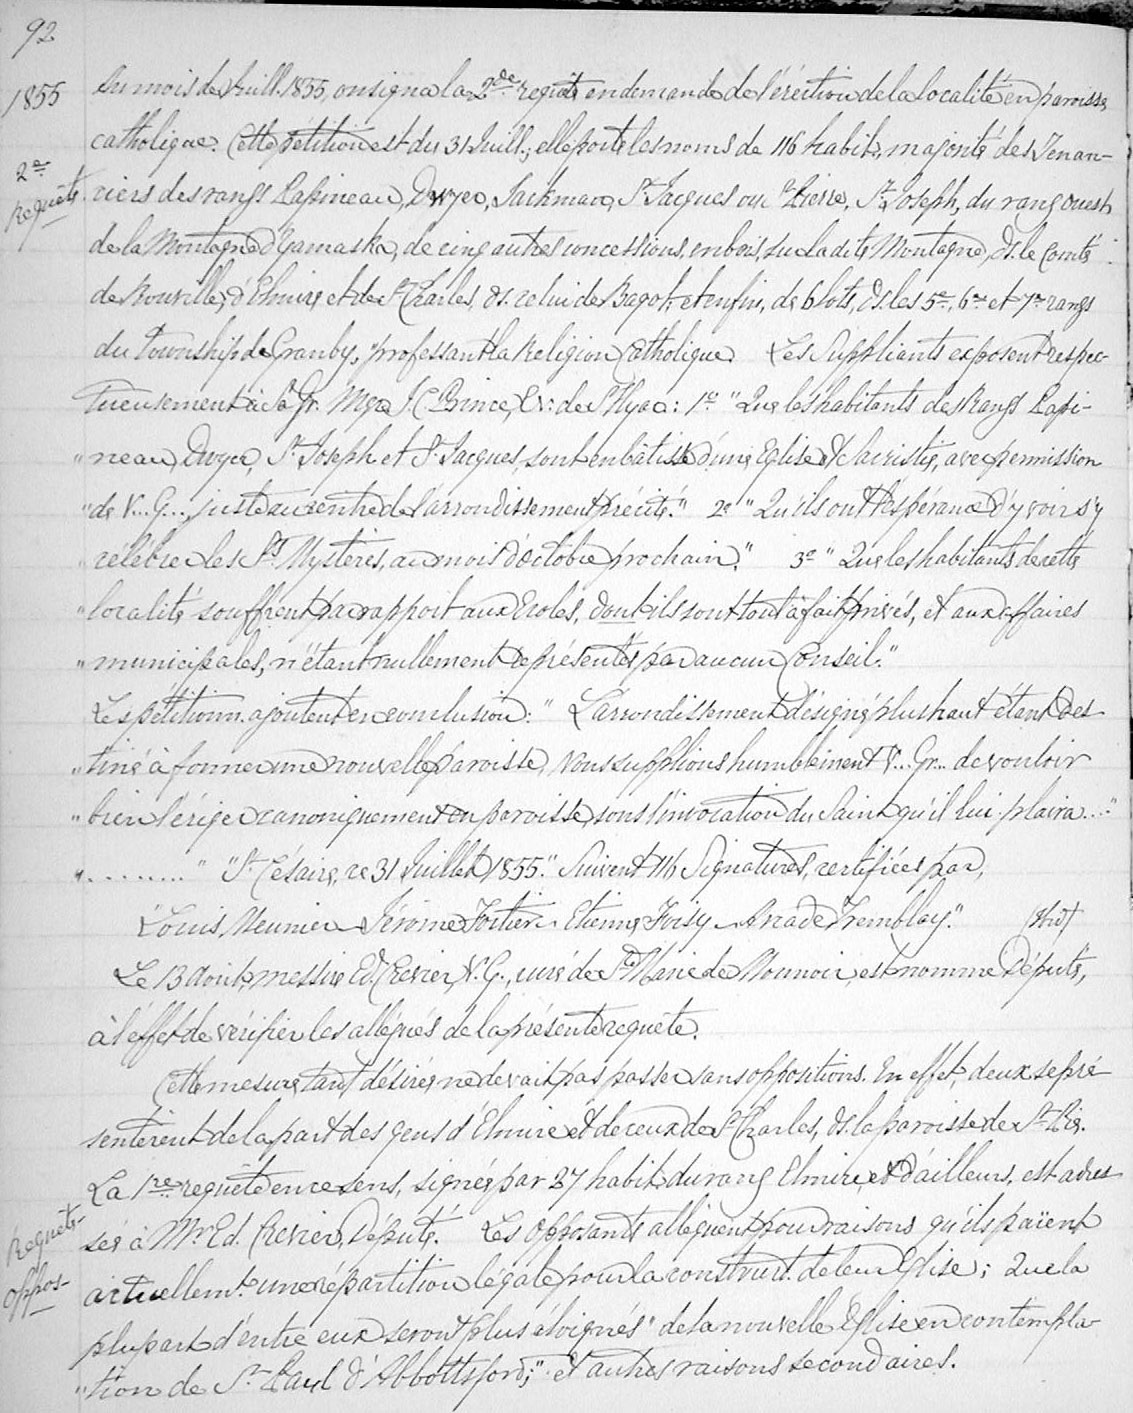 92
1855
Au mois de Juill. 1855, on signa la 2de requête en demande de l'érection de la localité en paroisse
catholique. Cette pétition est du 31 Juill.; elle porte les noms de 116 habits, majorité des Tenan-
2e
Requête
ciers des rangs Papineau, Dwyer, Jackman, St Jacques ou St Pierre, St Joseph, du rang ouest
de la Montagne d'Yamaska, de cinq autres concessions, en bois, sur la dite Montagne, ds. le Comté
de Rouville, d'Elmire et de St Charles, ds. celui de Bagot, et enfin, de 6 lots, ds. les 5e, 6e et 7e rangs
du Township de Granby, "professant la Religion Catholique. Les Suppliants exposent respec-
tueusement à Sa Gr. Mgr J. C. Prince, Ev: de St Hyac: 1o "Que les habitants des Rangs Papi-
"neau, Dwyer, St Joseph et St Jacques, sont en bâtisse d'une Eglise & Sacristie, avec permission
"de V... G..., juste au centre de l'arrondissement précité." 2o "Qu'ils ont l'espérance d'y voir s'y
célébrer les Sts Mystères, au mois d'Octobre prochain." 3o "Que les habitants de cette
"localité souffrent par rapport aux Ecoles, dont ils sont tout à fait privés, et aux affaires
"municipales, n'étant nullement représentés par aucun Conseil."
Les pétitionn. ajoutent en conclusion: "L'arrondissement désigné plus haut étant des-
"tiné à former une nouvelle paroisse, nous supplions humblement V... Gr... de vouloir
"bien l'ériger canoniquement en paroisse, sous l'invocation du Saint qu'il lui plaira..."
"........." "St Césaire, ce 31 Juillet 1855." Suivent 116 Signatures, certifiées par,
"Louis Meunier Jérôme Fortier Etienne Foisy Arcade Tremblay."
Le 13 Août, messire Ed. Crevier, V. G., curé de Ste Marie de Monnoir, est nommé Député,
à l'effet de vérifier les allégués de la présente requête.
Cette mesure, tant désirée, ne devait pas passer sans oppositions. En effet, deux se pré-
sentèrent de la part des gens d'Elmire et de ceux de St Charles, ds. la paroisse de St Pie.
La 1re requête en ce sens, signée par 27 habit. du rang Elmire, et d'ailleurs, est adres-
Requête
oppos-
sée à Mr Ed. Crevier, Député. Les Opposants allèguent pour raisons qu'ils paient
actuellemt une répartition légale pour la construct. de leur Eglise; Que la
plupart d'entre eux seront plus éloignés "de la nouvelle Eglise en contempla-
"tion de St Paul d'Abbottsford;" et autres raisons secondaires.